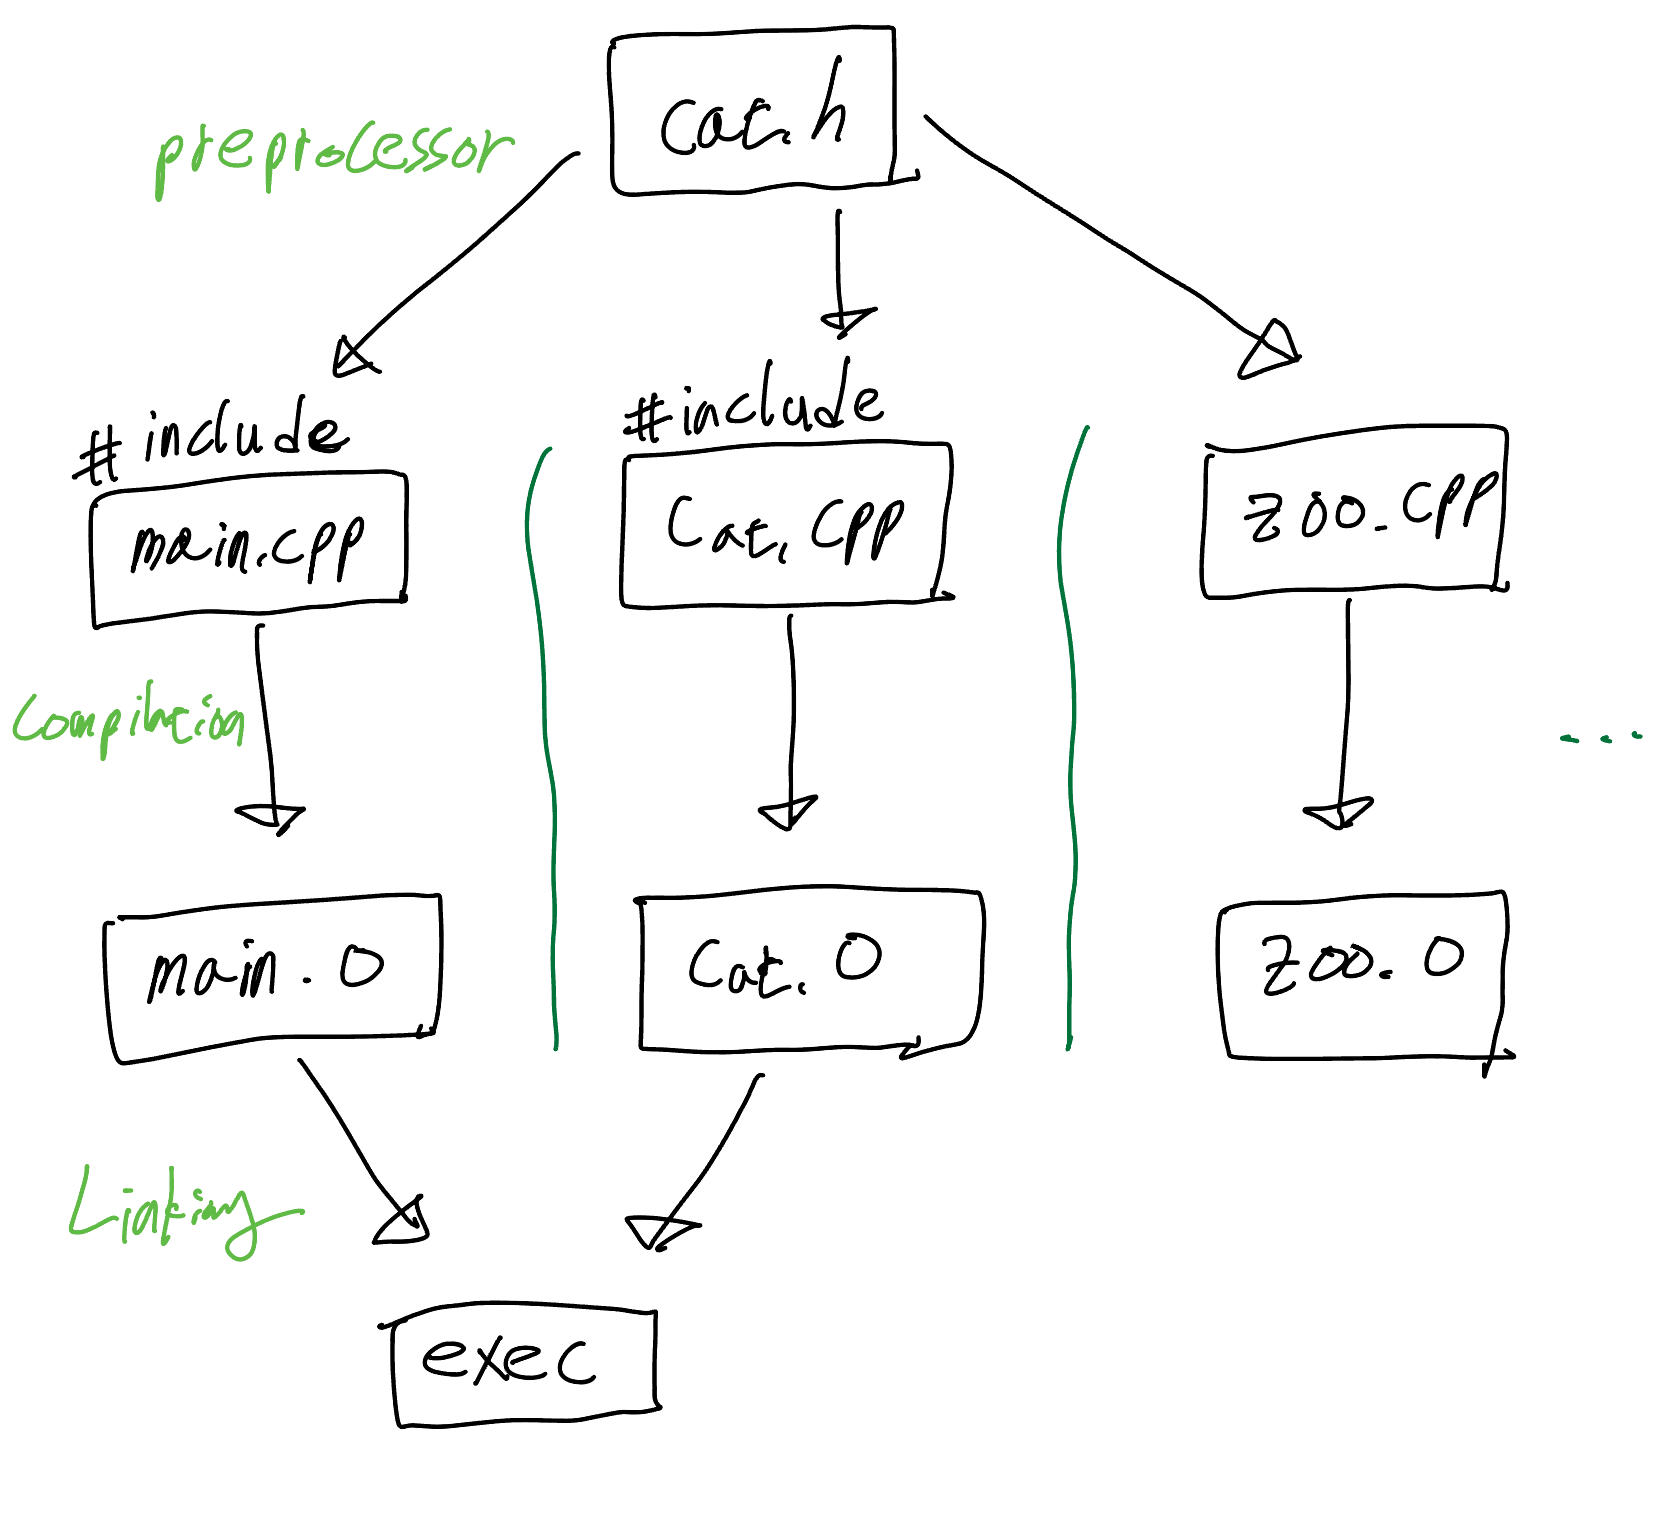 cat.h
preprocessor
#include
#include
main.cpp
Cat.cpp
zoo.cpp
Compilation
...
main.o
Cat.o
zoo.o
Linking
exec